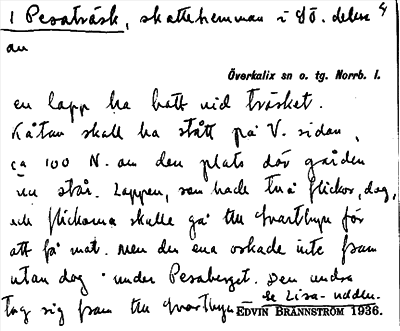 1 Pesaträsk, skattehemman i SÖ. delen 4
av
Överkalix sn o. tg. Norrb. l.
en lapp ha haft vid träsket.
Kåtan skall ha stått på V. sidan,
ca 100 N. om den plats där gården
nu står. Lappen, som hade två flickor, dog,
och flickorna skulle gå till Svartbyn för
att få mat. Men den ena orkade inte fram
utan dog under Pesaberget. Den andra
tog sig fram till Svartbyn
se Lisa-udden.
EDVIN BRÄNNSTRÖM 1936.